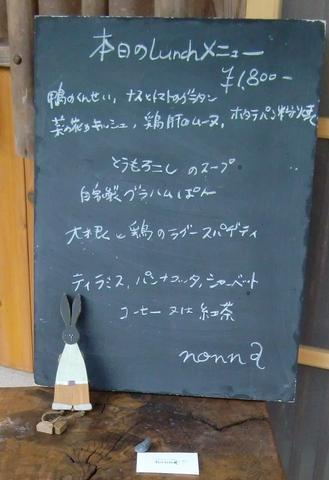 本日のLunchメニュー
¥1,800-
鴨のくんせい、ナスとトマトのグラタン
菜の花のキッシュ、鶏肝のムース、ホタテパン粉焼き
とうもろこしのスープ
自家製グラハムぱん
大根と鶏のラグースパゲティ
ティラミス、パンナコッタ、シャーベット
コーヒー又は紅茶
nonna